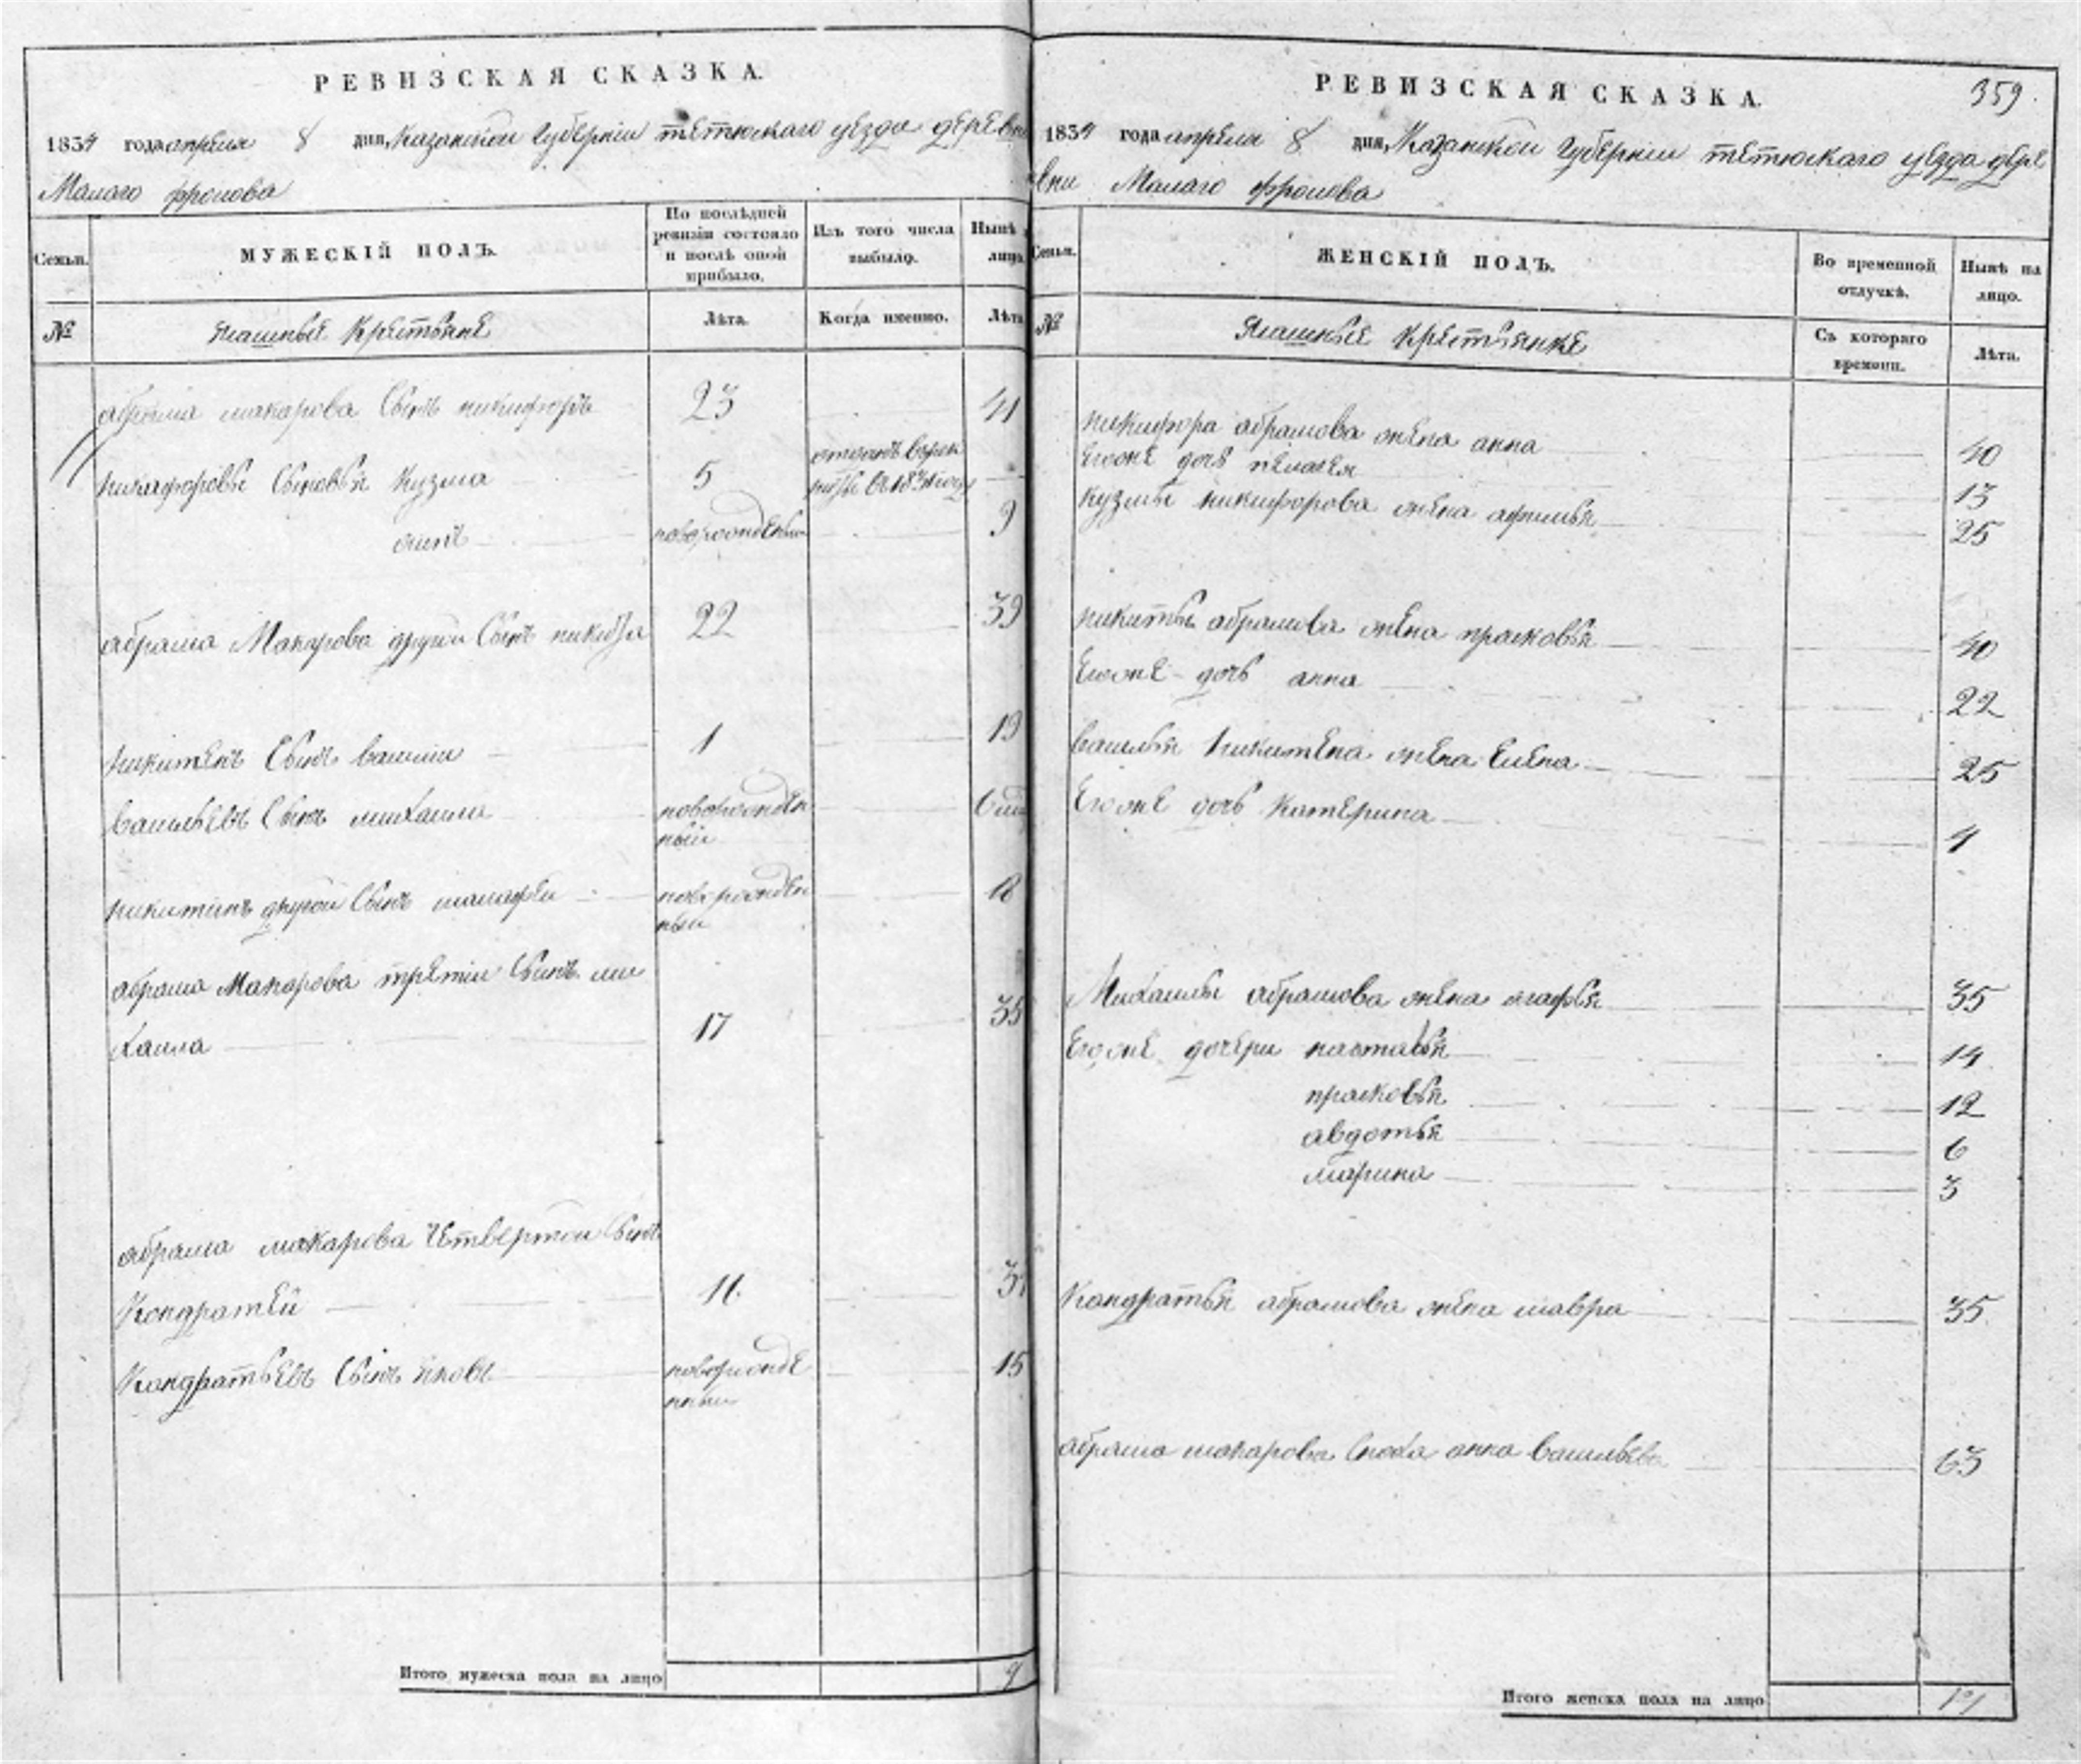 РЕВИЗСКАЯ СКАЗКА.
1834 года апреля 8 дня, Казанской Губернiи тетюскаго уезда деревни
Малаго фролова
Семьи.
МУЖЕСКІЙ ПОЛЪ.
По послѣдней ревизіи состояло и послѣ оной прибыло.
Изъ того числа выбыло.
Нынѣ лицо
№
Ясашные Крестьяне
Лѣта.
Когда именно.
Лѣта
абрама макарова Сынъ никифоръ 23 41
никифоровы Сыновья Кузма 5 отданъ в рек
руты в 1831 году
осипъ новорожденны 9
абрама Макарова другои Сынъ никита 22 39
никитенъ Сынъ василеи 1 19
васильевъ Сынъ михаила новорожден
ныи
никитинъ другои Сынъ малафеи новорожден 18
ныи
абрама Макарова третiи Сынъ ми
хаила 17 35
абрама макарова Четвертои Сынъ
Кондратей 16
Кондратьевъ Сынъ яковъ новорожде 15
нныи
Итого мужеска пола на лицо 9
РЕВИЗСКАЯ СКАЗКА.
359.
1834 года апреля 8 дня, Казанскои Губернiи тетюскаго уезда дере
вни Малаго Фролова
Семьи.
ЖЕНСКІЙ ПОЛЪ.
Во временной отлучкѣ.
Нынѣ на лицо.
№
Ясашные Крестьянке
Съ котораго времени.
Лѣта.
никифора абрамова жена анна 40
Егоже дочь пелагея 13
Кузмы никифорова жена афимья 25
никиты абрамова жена прасковья 40
Егоже дочь анна 22
васильи Никитена жена Елена 25
Егоже дочь Катерина 4
Михаилы абрамова жена агафья 35
Егоже дочери настасья 14
прасковья 12
авдотья 6
марина 3
Кондратья абрамова жена мавра 35
абрама макарова Сноха анна васильева 63
Итого женска пола на лицо